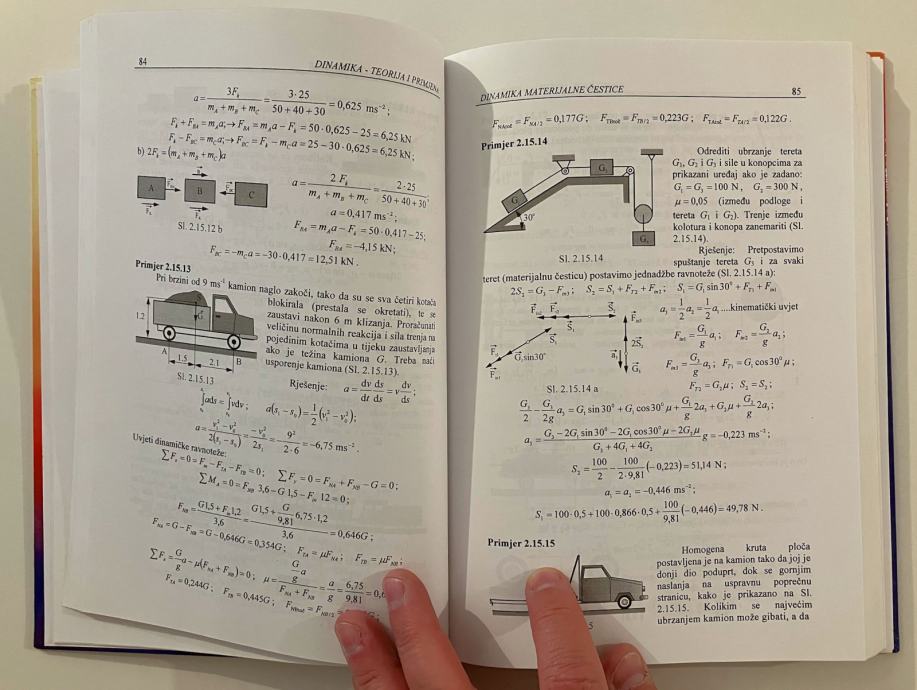 84
DINAMIKA - TEORIJA I PRIMJENA
a = 3F_k / (m_A + m_B + m_C) = 3·25 / (50+40+30) = 0,625 ms⁻²;
F_k + F_BA = m_A a; → F_BA = m_A a − F_k = 50·0,625 − 25 = 6,25 kN
F_k − F_BC = m_C a; → F_BC = F_k − m_C a = 25 − 30·0,625 = 6,25 kN;
b) 2F_k = (m_A + m_B + m_C)a
A
B
C
a = 2 F_k / (m_A + m_B + m_C) = 2·25 / (50+40+30)
a = 0,417 ms⁻²;
F_BA = m_A a − F_k = 50·0,417 − 25;
F_BA = −4,15 kN;
Sl. 2.15.12 b
F_BC = −m_C a = −30·0,417 = 12,51 kN .
Primjer 2.15.13
Pri brzini od 9 ms⁻¹ kamion naglo zakoči, tako da su se sva četiri kotača
blokirala (prestala se okretati), te se
zaustavi nakon 6 m klizanja. Proračunati
veličinu normalnih reakcija i sila trenja na
pojedinim kotačima u tijeku zaustavljanja
ako je težina kamiona G. Treba naći
usporenje kamiona (Sl. 2.15.13).
1.2
G
A
1.5
2.1
B
Sl. 2.15.13
Rješenje: a = dv/dt ds/ds = v dv/ds;
∫ads = ∫vdv; a(s₁ − s₀) = 1/2 (v₁² − v₀²);
a = (v₁² − v₀²) / 2(s₁ − s₀) = −v₀² / 2s₁ = 9² / (2·6) = −6,75 ms⁻² .
Uvjeti dinamičke ravnoteže:
∑F_x = 0 = F_in − F_TA − F_TB = 0; ∑F_y = 0 = F_NA + F_NB − G = 0;
∑M_A = 0 = F_NB 3,6 − G 1,5 − F_in 12 = 0;
F_NB = (G1,5 + F_in 1,2) / 3,6 = (G1,5 + G/9,81 6,75·1,2) / 3,6 = 0,646G ;
F_NA = G − F_NB = G − 0,646G = 0,354G ; F_TA = μF_NA ; F_TB = μF_NB ;
∑F_x = G/g a − μ(F_NA + F_NB) = 0; μ = (G/g a) / (F_NA + F_NB) = a/g = 6,75/9,81 = 0,6
F_TA = 0,244G ; F_TB = 0,445G ; F_NBuč = F_NB/2
DINAMIKA MATERIJALNE ČESTICE
85
F_NAuč = F_NA/2 = 0,177G ; F_TBuč = F_TB/2 = 0,223G ; F_TAuč = F_TA/2 = 0,122G .
Primjer 2.15.14
G₁
G₂
G₃
30°
Sl. 2.15.14
Odrediti ubrzanje tereta
G₁, G₂ i G₃ i sile u konopcima za
prikazani uređaj ako je zadano:
G₁ = G₂ = 100 N , G₃ = 300 N ,
μ = 0,05 (između podloge i
tereta G₁ i G₂). Trenje između
kolotura i konopa zanemariti (Sl.
2.15.14).
Rješenje: Pretpostavimo
spuštanje tereta G₃ i za svaki
teret (materijalnu česticu) postavimo jednadžbe ravnoteže (Sl. 2.15.14 a):
2S₂ = G₃ − F_in3 ; S₂ = S₁ + F_T2 + F_in2 ; S₁ = G₁ sin 30° + F_T1 + F_in1
G₁ sin30°
2S₂
a₃
G₃
Sl. 2.15.14 a
a₃ = 1/2 a₂ = 1/2 a₁ ....kinematički uvjet
F_in1 = G₁/g a₁ ; F_in2 = G₂/g a₂ ;
F_in3 = G₃/g a₃ ; F_T1 = G₁ cos 30° μ ;
F_T2 = G₂ μ ; S₂ = S₂ ;
G₃/2 − G₃/2g a₃ = G₁ sin 30° + G₁ cos30° μ + G₁/g 2a₃ + G₂ μ + G₂/g 2a₃ ;
a₃ = (G₃ − 2G₁ sin30° − 2G₁ cos30° μ − 2G₂ μ) / (G₃ + 4G₁ + 4G₂) g = −0,223 ms⁻² ;
S₂ = 100/2 − 100/(2·9,81) (−0,223) = 51,14 N ;
a₁ = a₂ = −0,446 ms⁻² ;
S₁ = 100·0,5 + 100·0,866·0,5 + 100/9,81 (−0,446) = 49,78 N .
Primjer 2.15.15
Homogena kruta ploča
postavljena je na kamion tako da joj je
donji dio poduprt, dok se gornjim
naslanja na uspravnu poprečnu
stranicu, kako je prikazano na Sl.
2.15.15. Kolikim se najvećim
ubrzanjem kamion može gibati, a da
5